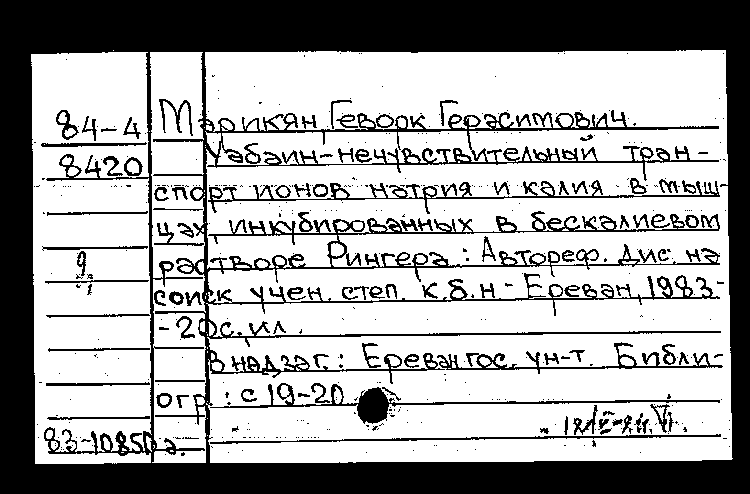 84-4 Марикян, Геворк Герасимович.
8420 Уабаин-нечувствительный тран-
спорт ионов натрия и калия в мыш-
цах, инкубированных в бескалиевом
растворе Рингера: Автореф. дис. на
соиск учен. степ. к.б.н - Ереван, 1983-
-20с. ил.
В надзаг.: Ереван гос. ун-т. Библи-
огр : с 19-20
83-10850 а.